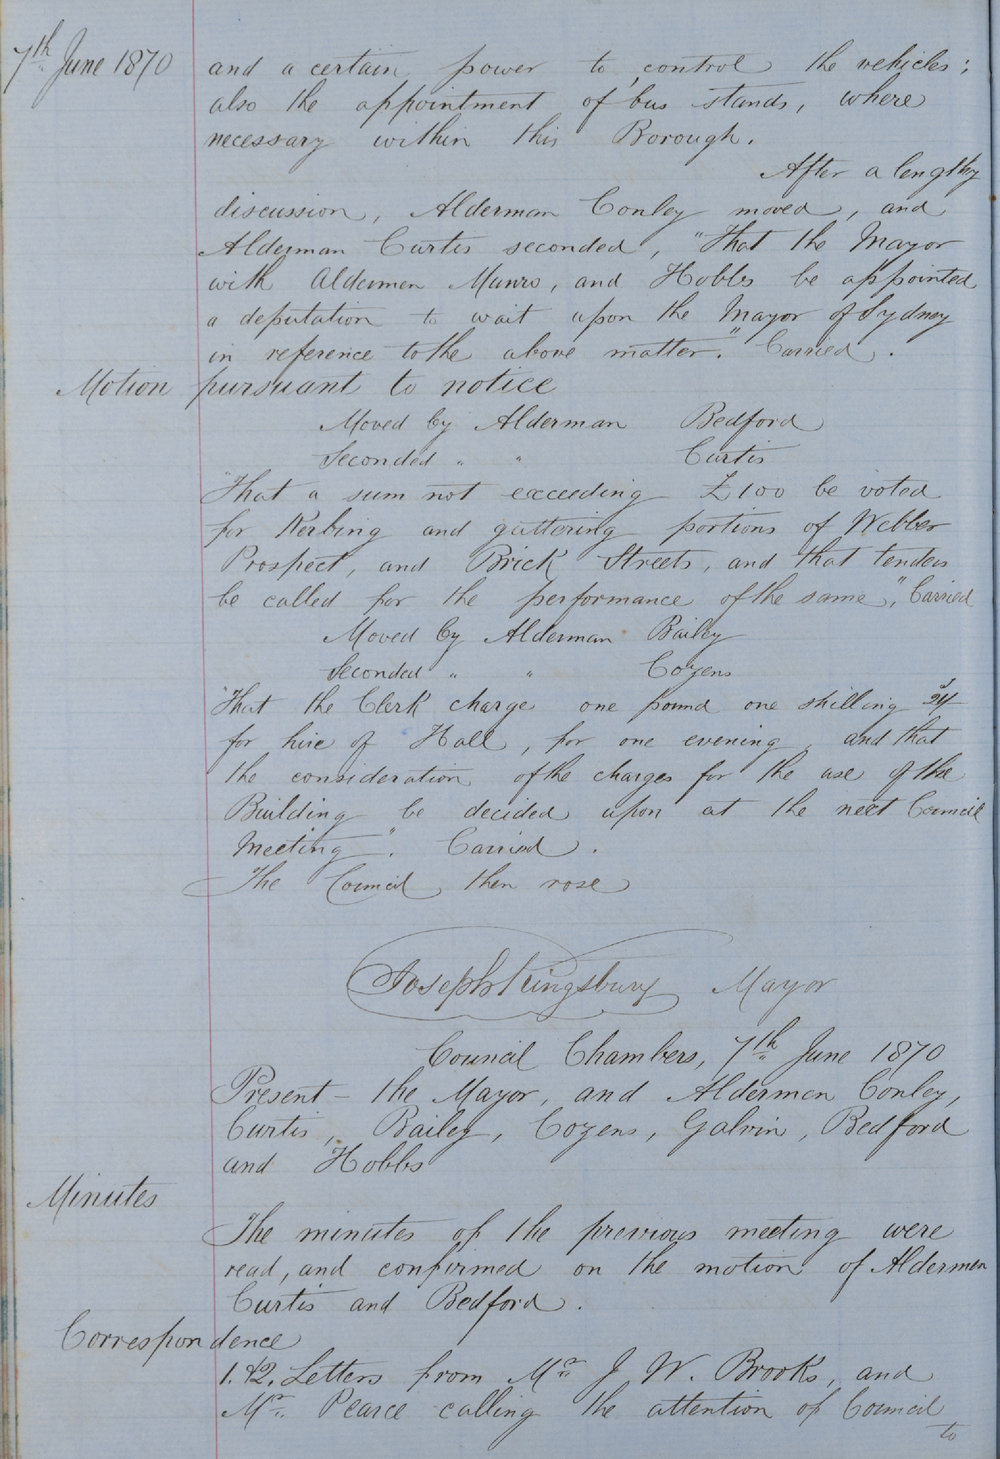 7th June 1870
and a certain power to control the vehicles;
also the appointment of bus stands, where
necessary within this Borough.
After a lengthy
discussion, Alderman Conley moved, and
Alderman Curtis seconded, "That the Mayor
with Aldermen Munro, and Hobbs be appointed
a deputation to wait upon the Mayor of Sydney
in reference to the above matter." Carried.
Motion pursuant to notice
Moved by Alderman Bedford
Seconded " " Curtis
"That a sum not exceeding £100 be voted
for Kerbing and guttering portions of Webber
Prospect, and Brick Streets, and that tenders
be called for the performance of the same," Carried
Moved by Alderman Bailey
Seconded " " Cozens
"That the Clerk charge one pound one shilling
for hire of Hall, for one evening, and that
the consideration of the charges for the use of the
Building be decided upon at the next Council
Meeting". Carried.
The Council then rose
Joseph Kingsbury Mayor
Council Chambers, 7th June 1870
Present - the Mayor, and Aldermen Conley,
Curtis, Bailey, Cozens, Galvin, Bedford
and Hobbs
Minutes
The minutes of the previous meeting were
read, and confirmed on the motion of Aldermen
Curtis and Bedford.
Correspondence
1. &2. Letters from Mr J W. Brooks, and
Mr Pearce calling the attention of Council
to